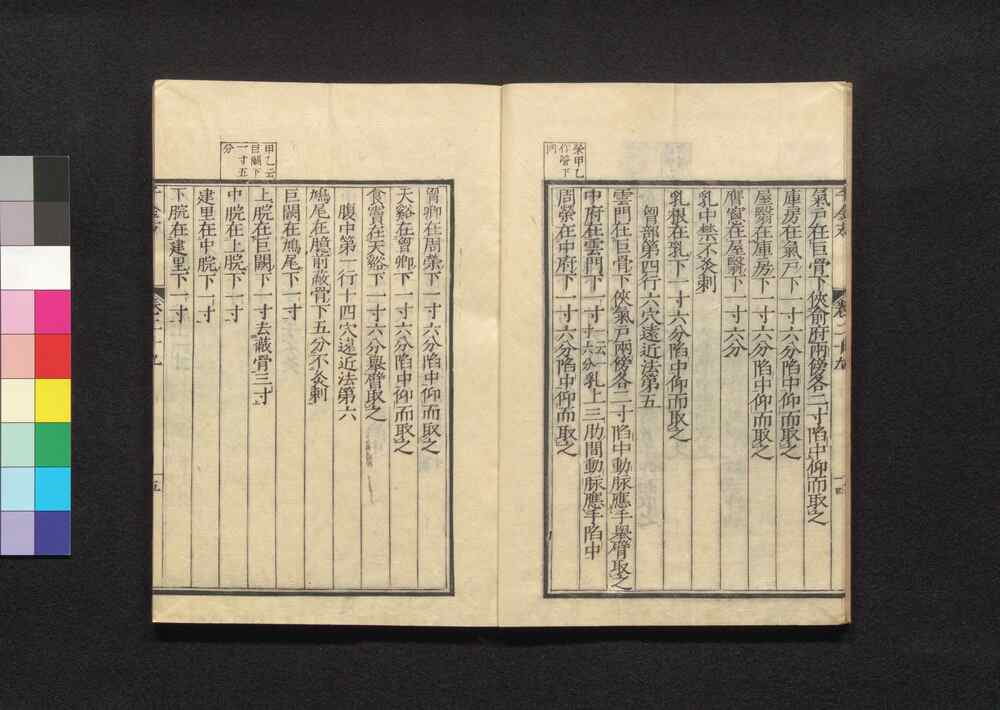 榮甲乙
作營下
同
氣戶在巨骨下俠俞府兩傍各二寸陷中仰而取之
庫房在氣戶下一寸六分陷中仰而取之
屋翳在庫房下一寸六分陷中仰而取之
膺窻在屋翳下一寸六分
乳中禁不灸刺
乳根在乳下一寸六分陷中仰而取之
胷部第四行六穴遠近法第五
雲門在巨骨下俠氣戶兩傍各二寸陷中動脉應手舉臂取之
中府在雲門下一寸一云一寸六分乳上三肋間動脉應手陷中
周榮在中府下一寸六分陷中仰而取之
甲乙云
巨闕下
一寸五
分
胷鄉在周榮下一寸六分陷中仰而取之
天谿在胷鄉下一寸六分陷中仰而取之
食竇在天谿下一寸六分舉臂取之
腹中第一行十四穴遠近法第六
鳩尾在臆前蔽骨下五分不灸刺
巨闕在鳩尾下一寸
上脘在巨闕下一寸去蔽骨三寸
中脘在上脘下一寸
建里在中脘下一寸
下脘在建里下一寸